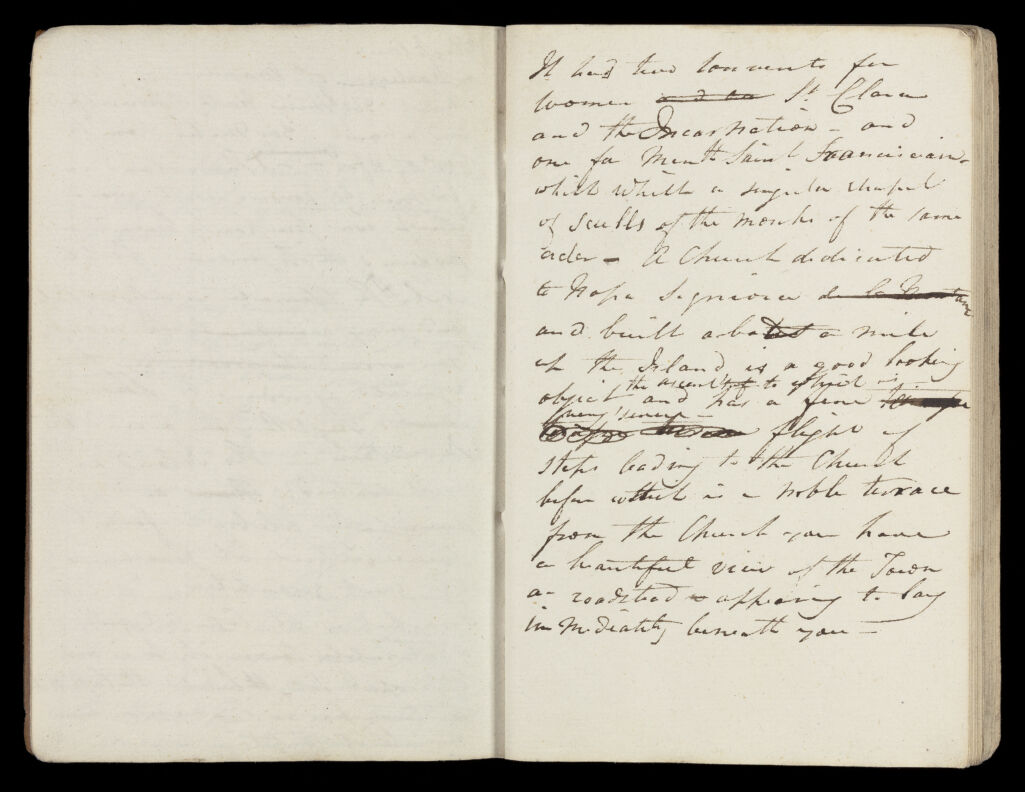 It had two Convents for
Women and an St. Clara
and the Incarnation - and
one for Men the Saint Franciscan -
which a singular chapel
of Sculls of the monks of the same
order - A Church dedicated
to Nossa Signiora de la
and built about a mile
up the Island is a good looking
the ascent to which is
object and has a fine
flight of
steps leading to the Church
before which is a noble terrace
from the Church you have
a beautiful view of the Town
roadstead appearing to lay
immediately beneath you -